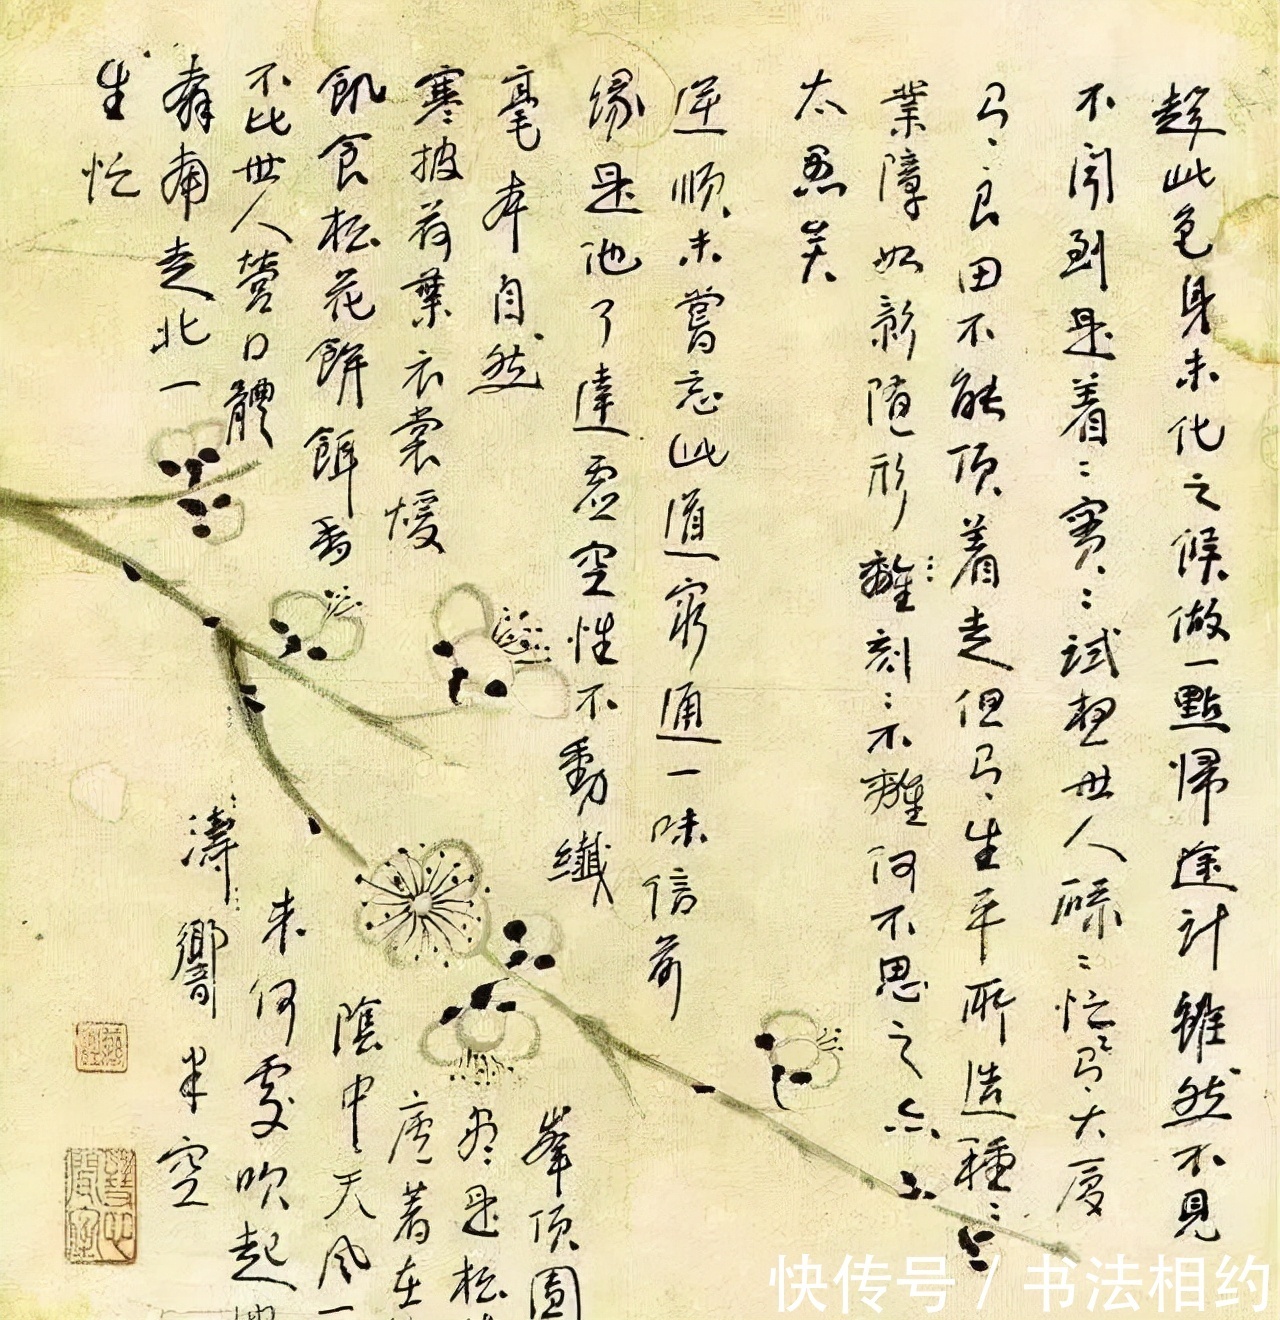 趁此色身未化之候做一點歸途計雖然不見
不聞到是着〻實〻試想世人碌〻忙〻司〻大廈
司〻良田不能頂着走但司〻生平所造種〻
業障如影随形離刻〻不離何不思之
太愚矣
逆順未嘗忘此道窮通一味信前
緣是他了達虛空性不動纖
毫本自然
寒披荷葉衣裳煖
飢食松花餅餌香
不比世人營口體
奔南走北一
生忙
峯頂圓
是松
唐著在
陰中天風一
來何處吹起
濤響半空
快传号 / 书法相约